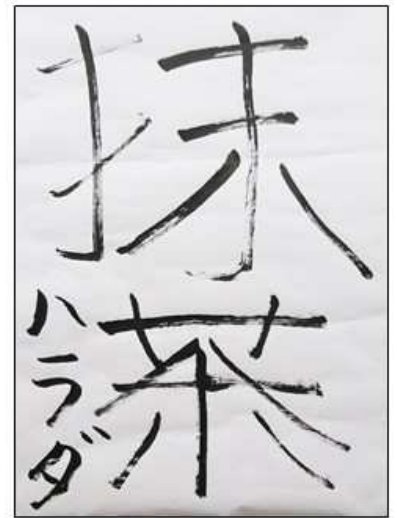 抹茶
ハラダ